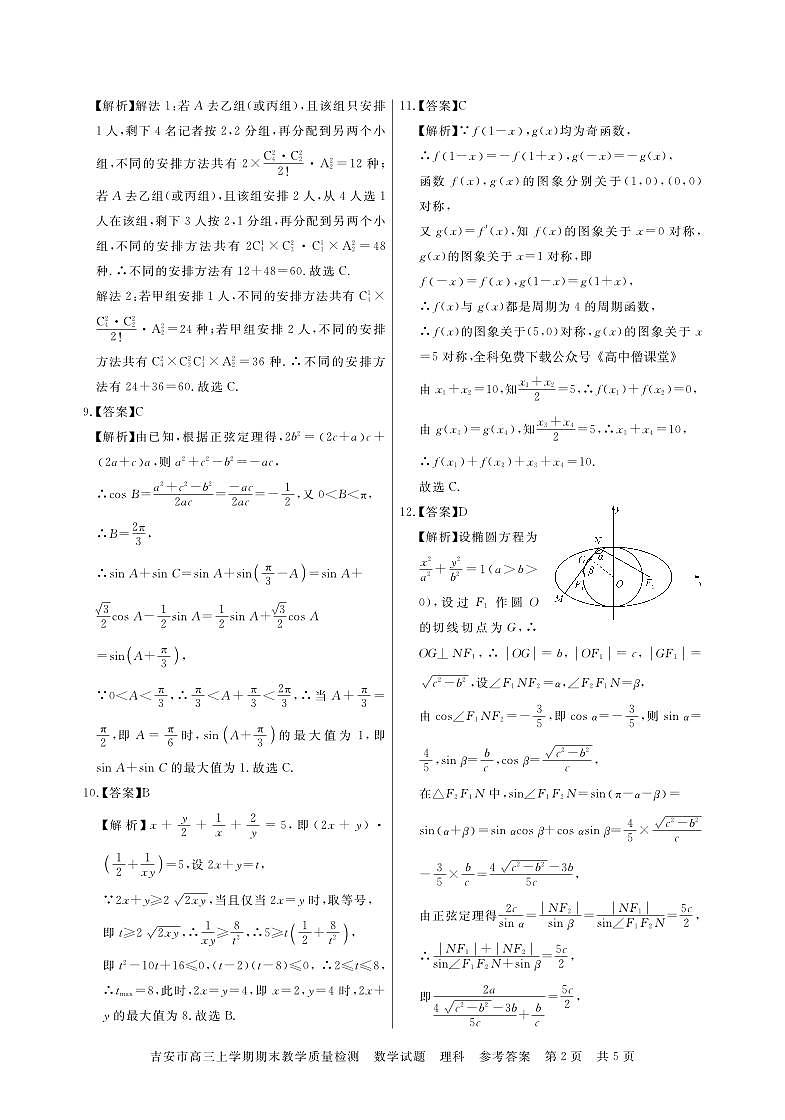 【解析】解法 1:若 A 去乙组(或丙组),且该组只安排
1 人,剩下 4 名记者按 2,2 分组,再分配到另两个小
组,不同的安排方法共有 2×\frac{C_4^2·C_2^2}{2!}·A_2^2=12 种;
若 A 去乙组(或丙组),且该组安排 2 人,从 4 人选 1
人在该组,剩下 3 人按 2,1 分组,再分配到另两个小
组,不同的安排方法共有 2C_4^1×C_3^2·C_1^1×A_2^2=48
种.∴不同的安排方法有 12+48=60.故选 C.
解法 2:若甲组安排 1 人,不同的安排方法共有 C_4^1×
\frac{C_4^2·C_2^2}{2!}·A_2^2=24 种;若甲组安排 2 人,不同的安排
方法共有 C_4^2×C_3^2C_1^1×A_2^2=36 种.∴不同的安排方
法有 24+36=60.故选 C.
9.【答案】C
【解析】由已知,根据正弦定理得,2b²=(2c+a)c+
(2a+c)a,则 a²+c²-b²=-ac,
∴cos B=\frac{a²+c²-b²}{2ac}=\frac{-ac}{2ac}=-\frac{1}{2},又 0<B<π,
∴B=\frac{2π}{3},
∴sin A+sin C=sin A+sin(\frac{π}{3}-A)=sin A+
\frac{√3}{2}cos A-\frac{1}{2}sin A=\frac{1}{2}sin A+\frac{√3}{2}cos A
=sin(A+\frac{π}{3}),
∵0<A<\frac{π}{3},∴\frac{π}{3}<A+\frac{π}{3}<\frac{2π}{3},∴当 A+\frac{π}{3}=
\frac{π}{2},即 A=\frac{π}{6}时,sin(A+\frac{π}{3})的最大值为 1,即
sin A+sin C 的最大值为 1.故选 C.
10.【答案】B
【解析】x+\frac{y}{2}+\frac{1}{x}+\frac{2}{y}=5,即(2x+y)·
(\frac{1}{2}+\frac{1}{xy})=5,设 2x+y=t,
∵2x+y≥2√{2xy},当且仅当 2x=y 时,取等号,
即 t≥2√{2xy},∴\frac{1}{xy}≥\frac{8}{t²},∴5≥t(\frac{1}{2}+\frac{8}{t²}),
即 t²-10t+16≤0,(t-2)(t-8)≤0,∴2≤t≤8,
∴t_{max}=8,此时,2x=y=4,即 x=2,y=4 时,2x+
y 的最大值为 8.故选 B.
11.【答案】C
【解析】∵f(1-x),g(x)均为奇函数,
∴f(1-x)=-f(1+x),g(-x)=-g(x),
函数 f(x),g(x)的图象分别关于(1,0),(0,0)
对称,
又 g(x)=f'(x),知 f(x)的图象关于 x=0 对称,
g(x)的图象关于 x=1 对称,即
f(-x)=f(x),g(1-x)=g(1+x),
∴f(x)与 g(x)都是周期为 4 的周期函数,
∴f(x)的图象关于(5,0)对称,g(x)的图象关于 x
=5 对称,全科免费下载公众号《高中僧课堂》
由 x_1+x_2=10,知\frac{x_1+x_2}{2}=5,∴f(x_1)+f(x_2)=0,
由 g(x_3)=g(x_4),知\frac{x_3+x_4}{2}=5,∴x_3+x_4=10,
∴f(x_1)+f(x_2)+x_3+x_4=10.
故选 C.
12.【答案】D
【解析】设椭圆方程为
\frac{x²}{a²}+\frac{y²}{b²}=1(a>b>
0),设过 F_1 作圆 O
的切线切点为 G,∴
N
α
G
β
O
M
OG⊥NF_1,∴|OG|=b,|OF_1|=c,|GF_1|=
√{c²-b²},设∠F_1NF_2=α,∠F_2F_1N=β,
由 cos∠F_1NF_2=-\frac{3}{5},即 cos α=-\frac{3}{5},则 sin α=
\frac{4}{5},sin β=\frac{b}{c},cos β=\frac{√{c²-b²}}{c},
在△F_2F_1N 中,sin∠F_1F_2N=sin(π-α-β)=
sin(α+β)=sin αcos β+cos αsin β=\frac{4}{5}×\frac{√{c²-b²}}{c}
-\frac{3}{5}×\frac{b}{c}=\frac{4√{c²-b²}-3b}{5c},
由正弦定理得\frac{2c}{sin α}=\frac{|NF_2|}{sin β}=\frac{|NF_1|}{sin∠F_1F_2N}=\frac{5c}{2},
∴\frac{|NF_1|+|NF_2|}{sin∠F_1F_2N+sin β}=\frac{5c}{2},
即\frac{2a}{\frac{4√{c²-b²}-3b}{5c}+\frac{b}{c}}=\frac{5c}{2},
吉安市高三上学期期末教学质量检测 数学试题 理科 参考答案 第 2 页 共 5 页